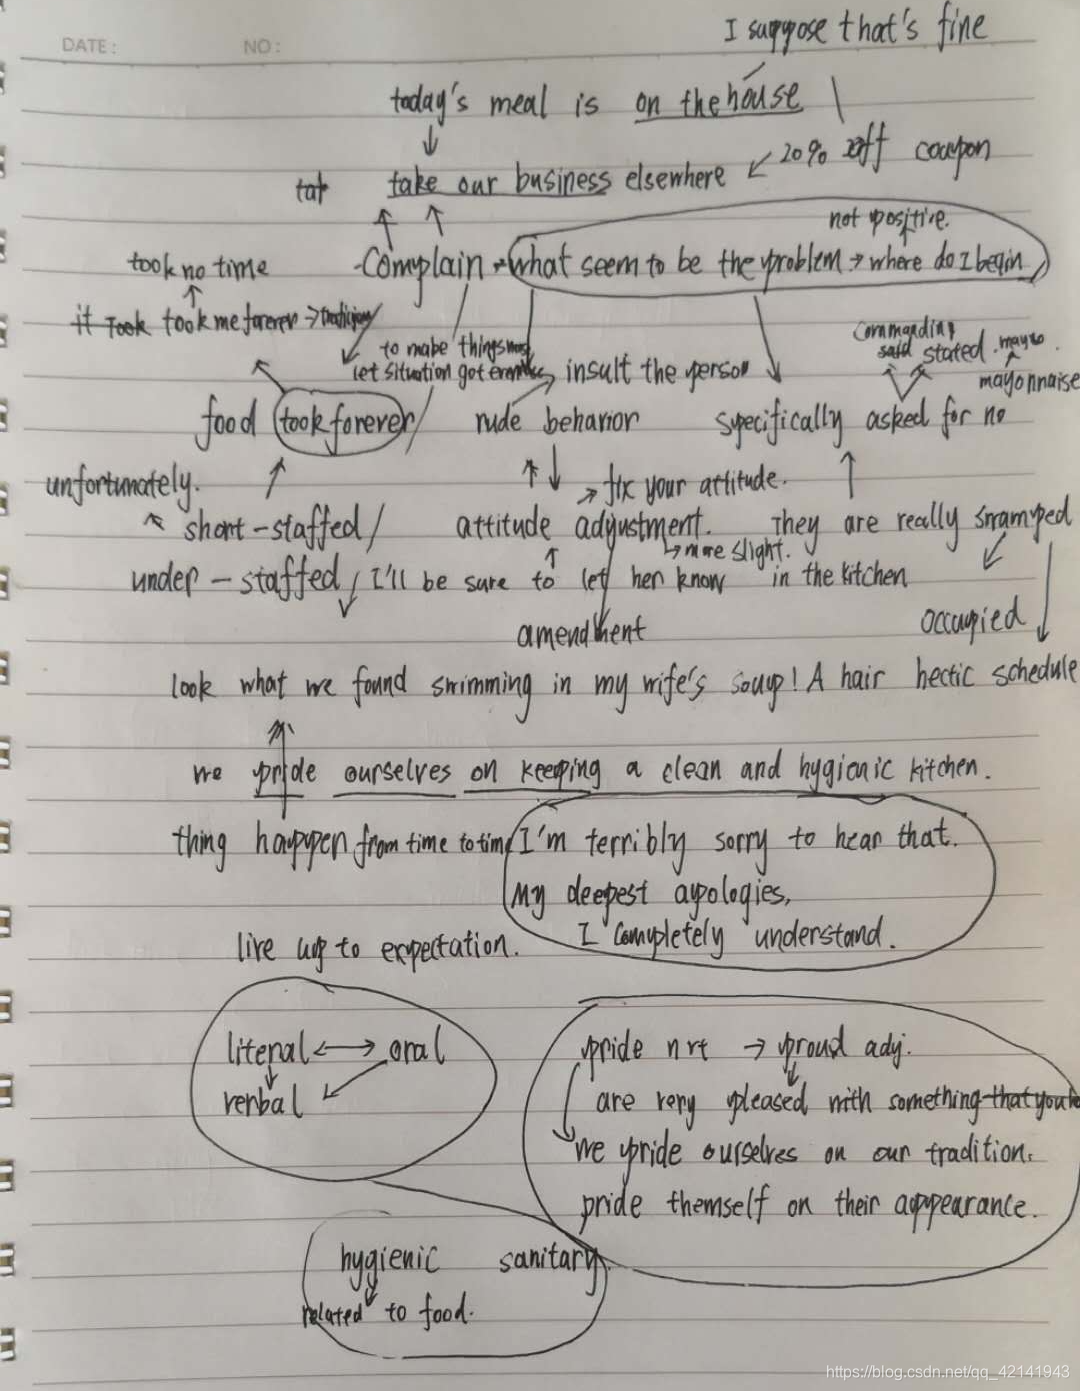 DATE: NO:
I suppose that's fine
today's meal is on the house
20% off coupon
tat take our business elsewhere
not positive.
took no time Complain → what seem to be the problem → where do I begin
it Took took me forever →
Commanding
to make things said stated. mayo
let situation got insult the person mayonnaise
food took forever / rude behavior specifically asked for no
unfortunately. → fix your attitude.
short-staffed / attitude adjustment. They are really swamped
↳ more slight.
under-staffed / I'll be sure to let her know in the kitchen
amendment occupied
look what we found swimming in my wife's soup! A hair hectic schedule
we pride ourselves on keeping a clean and hygienic kitchen.
thing happen from time to time I'm terribly sorry to hear that.
My deepest apologies,
live up to expectation. I completely understand.
literal ↔ oral pride n vt → proud adj.
verbal are very pleased with something that you
we pride ourselves on our tradition.
pride themself on their appearance.
hygienic sanitary
related to food.
https://blog.csdn.net/qq_42141943